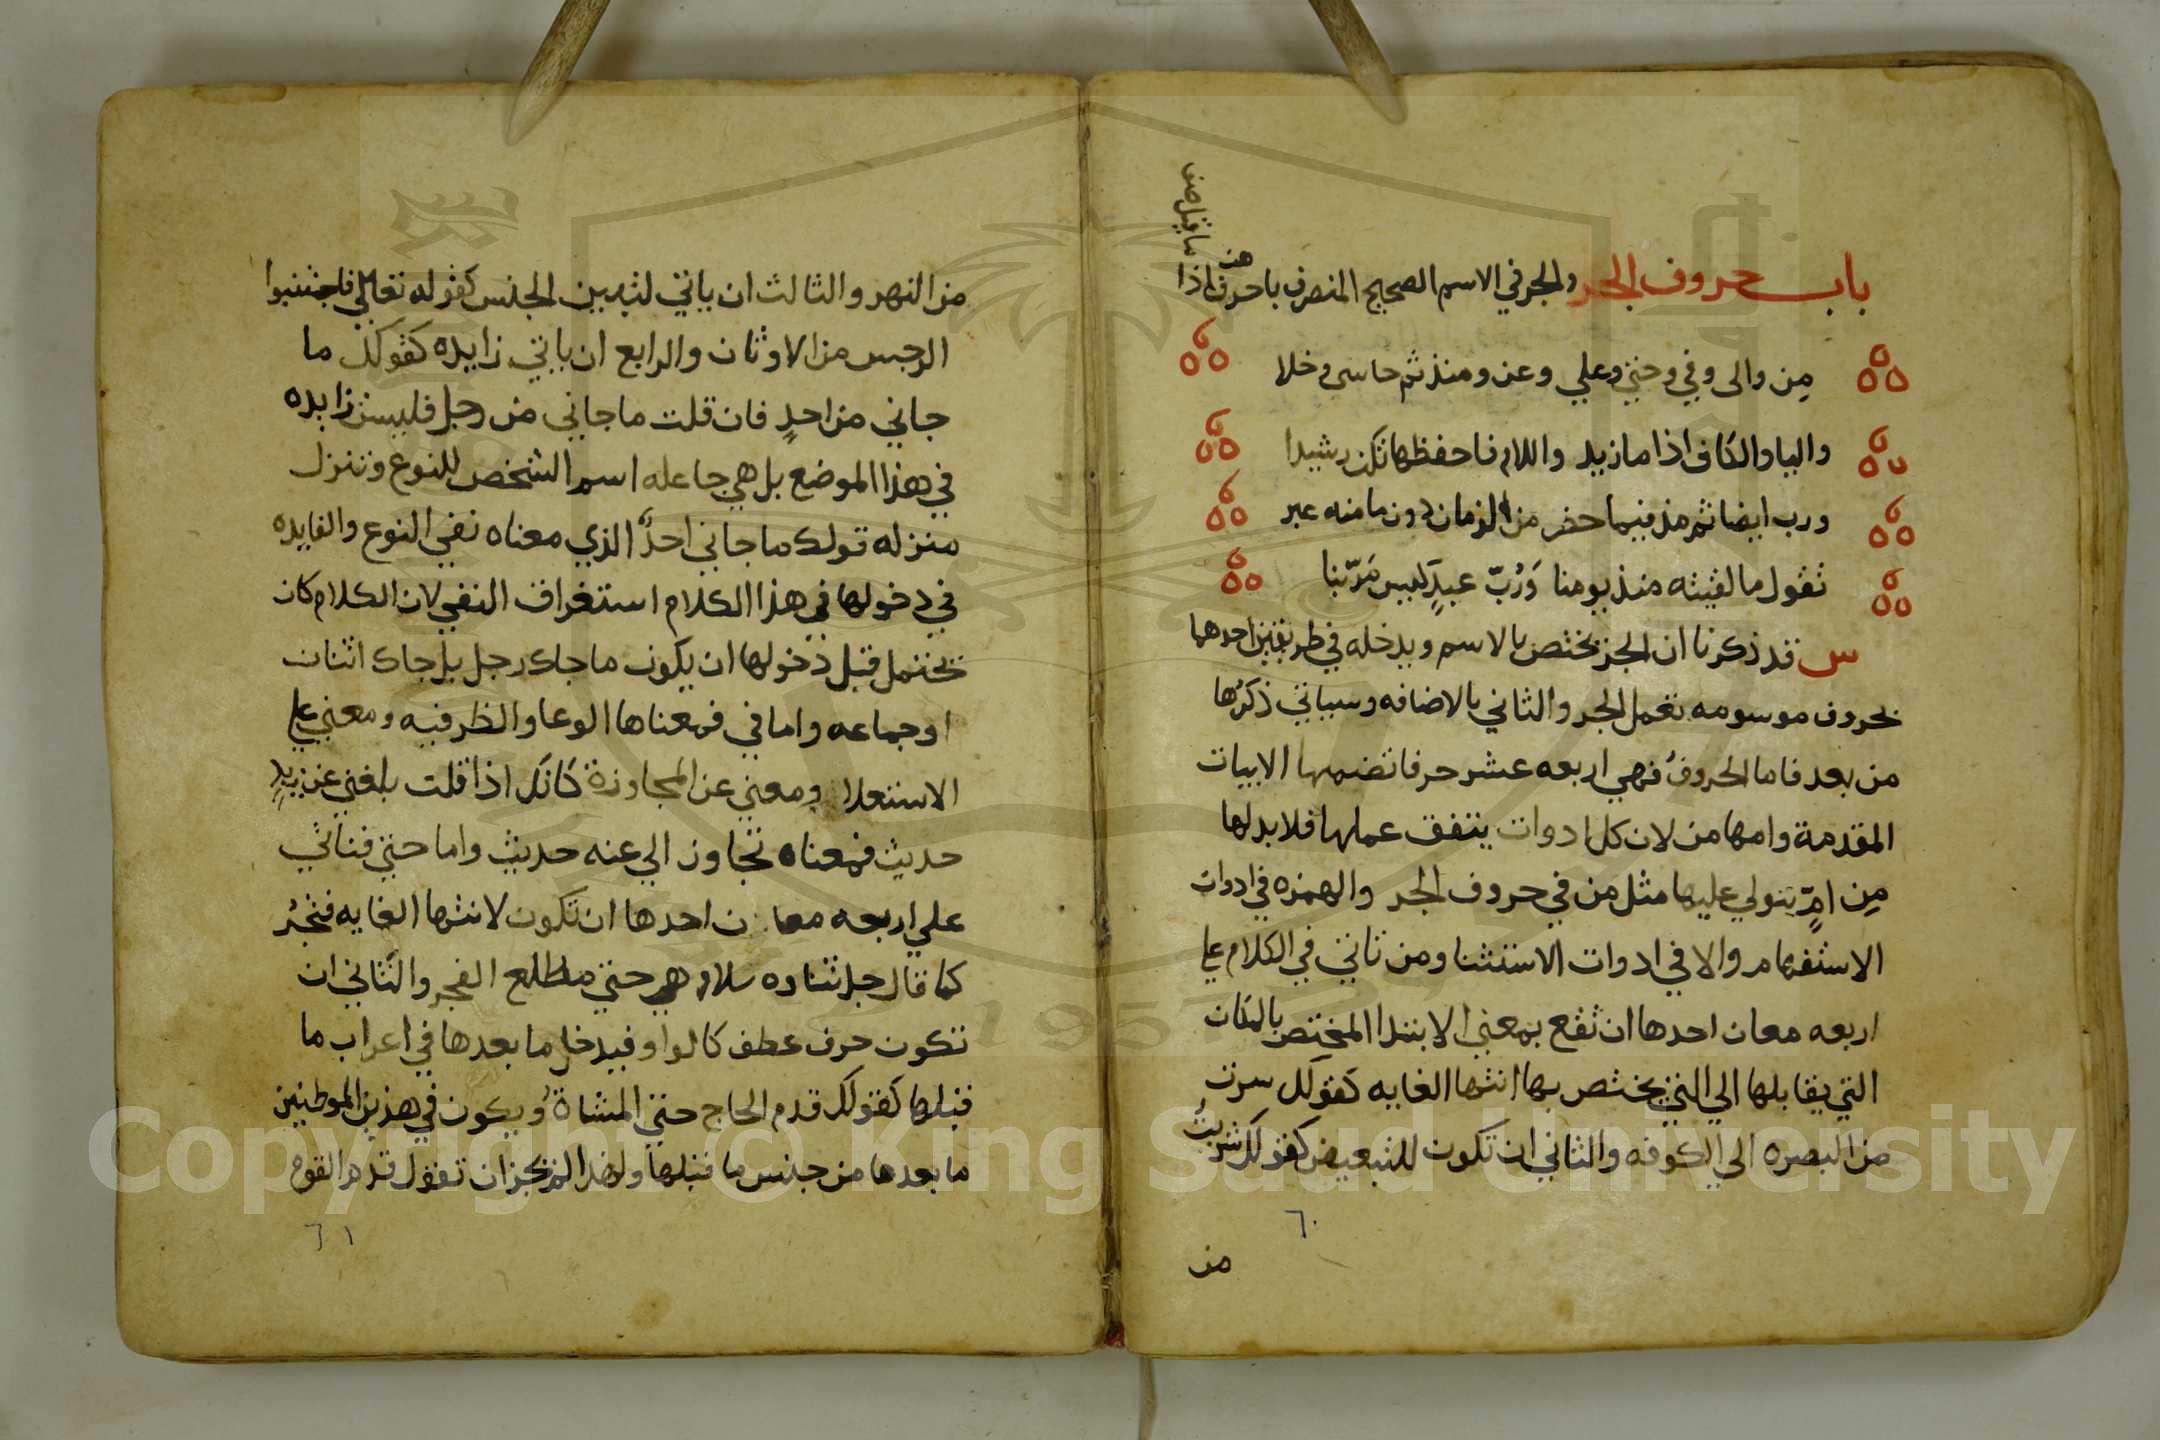 باب حروف الجر والجر في الاسم الصحيح المنصرف باحرف هن اذا
ما قيل صف
من والى وفي وحتى وعلي وعن ومنذ ثم حاسى وخلا
والبا والكاف اذا ما زيد واللام فاحفظها تكن رشيدا
ورب ايضا ثم مذ فيما حضر من الزمان دون ما منه عبر
تقول ما لقيته منذ يومنا وَرُبّ عبدٍ كيس مَرّ بنا
س قد ذكرنا ان الجر يختص بالاسم ويدخله في طريقين احدهما
بحروف موسومه تعمل الجر والثاني بالاضافه وسياتي ذكرُها
من بعد فاما الحروفُ فهي اربعه عشر حرفا تضمنها الابيات
المقدمة وامها من لان كل ادوات يتفق عملها فلا بد لها
مِن امٍّ يتولي عليها مثل من في حروف الجر والهمزه في ادوات
الاستفهام والا في ادوات الاستثنا ومن تاتي في الكلام علي
اربعه معان احدها ان تقع بمعني الابتدا المختص بالمكان
التي يقابلها الي التي يختص بها انتها الغايه كقولك سرت
من البصره الي الكوفه والثاني ان تكون للتبعيض كقولك شربتُ
٦٠
من
من النهر والثالث ان ياتي لتبيين الجنس كقوله تعالي فاجتنبوا
الرجس من الاوثان والرابع ان ياتي زايده كقولك ما
جاني من احدٍ فان قلت ما جاني من رجل فليس زايده
في هذا الموضع بل هي جاعله اسم الشخص للنوع وتنزل
منزله قولك ما جاني احدٌ الذي معناه نفي النوع والفايده
في دخولها في هذا الكلام استغراق النفي لان الكلام كان
يحتمل قبل دخولها ان يكون ما جاك رجل بل جاك اثنان
او جماعه واما في فمعناها الوعا والظرفيه ومعني علي
الاستعلا ومعني عن المجاوزة كانك اذا قلت بلغني عن زيدٍ
حديث فمعناه تجاوز الي عنه حديث واما حتي فتاتي
علي اربعه معان احدها ان تكون لانتها الغايه فتجرُ
كما قال جل ثناوه سلام هي حتي مطلع الفجر والثاني ان
تكون حرف عطف كالواو فيدخل ما بعدها في اعراب ما
قبلها كقولك قدم الحاج حتي المشاةُ ويكون في هذين الموطنين
ما بعدها من جنس ما قبلها ولهذا لم يجز ان تقول قدم القوم
٦١
Copyright © King Saud University
1957